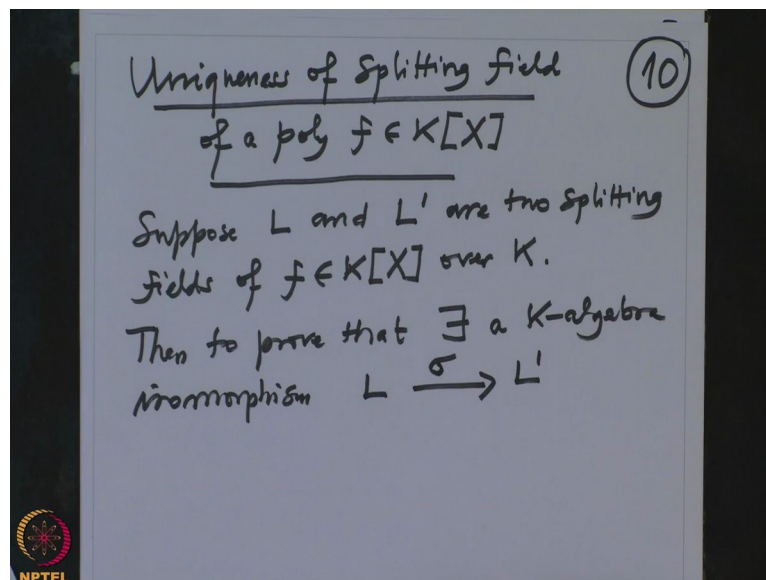 Uniqueness of Splitting field
10
of a poly f ∈ K[X]
Suppose L and L' are two splitting
fields of f ∈ K[X] over K.
Then to prove that ∃ a K-algebra
isomorphism L σ→ L'
NPTEL